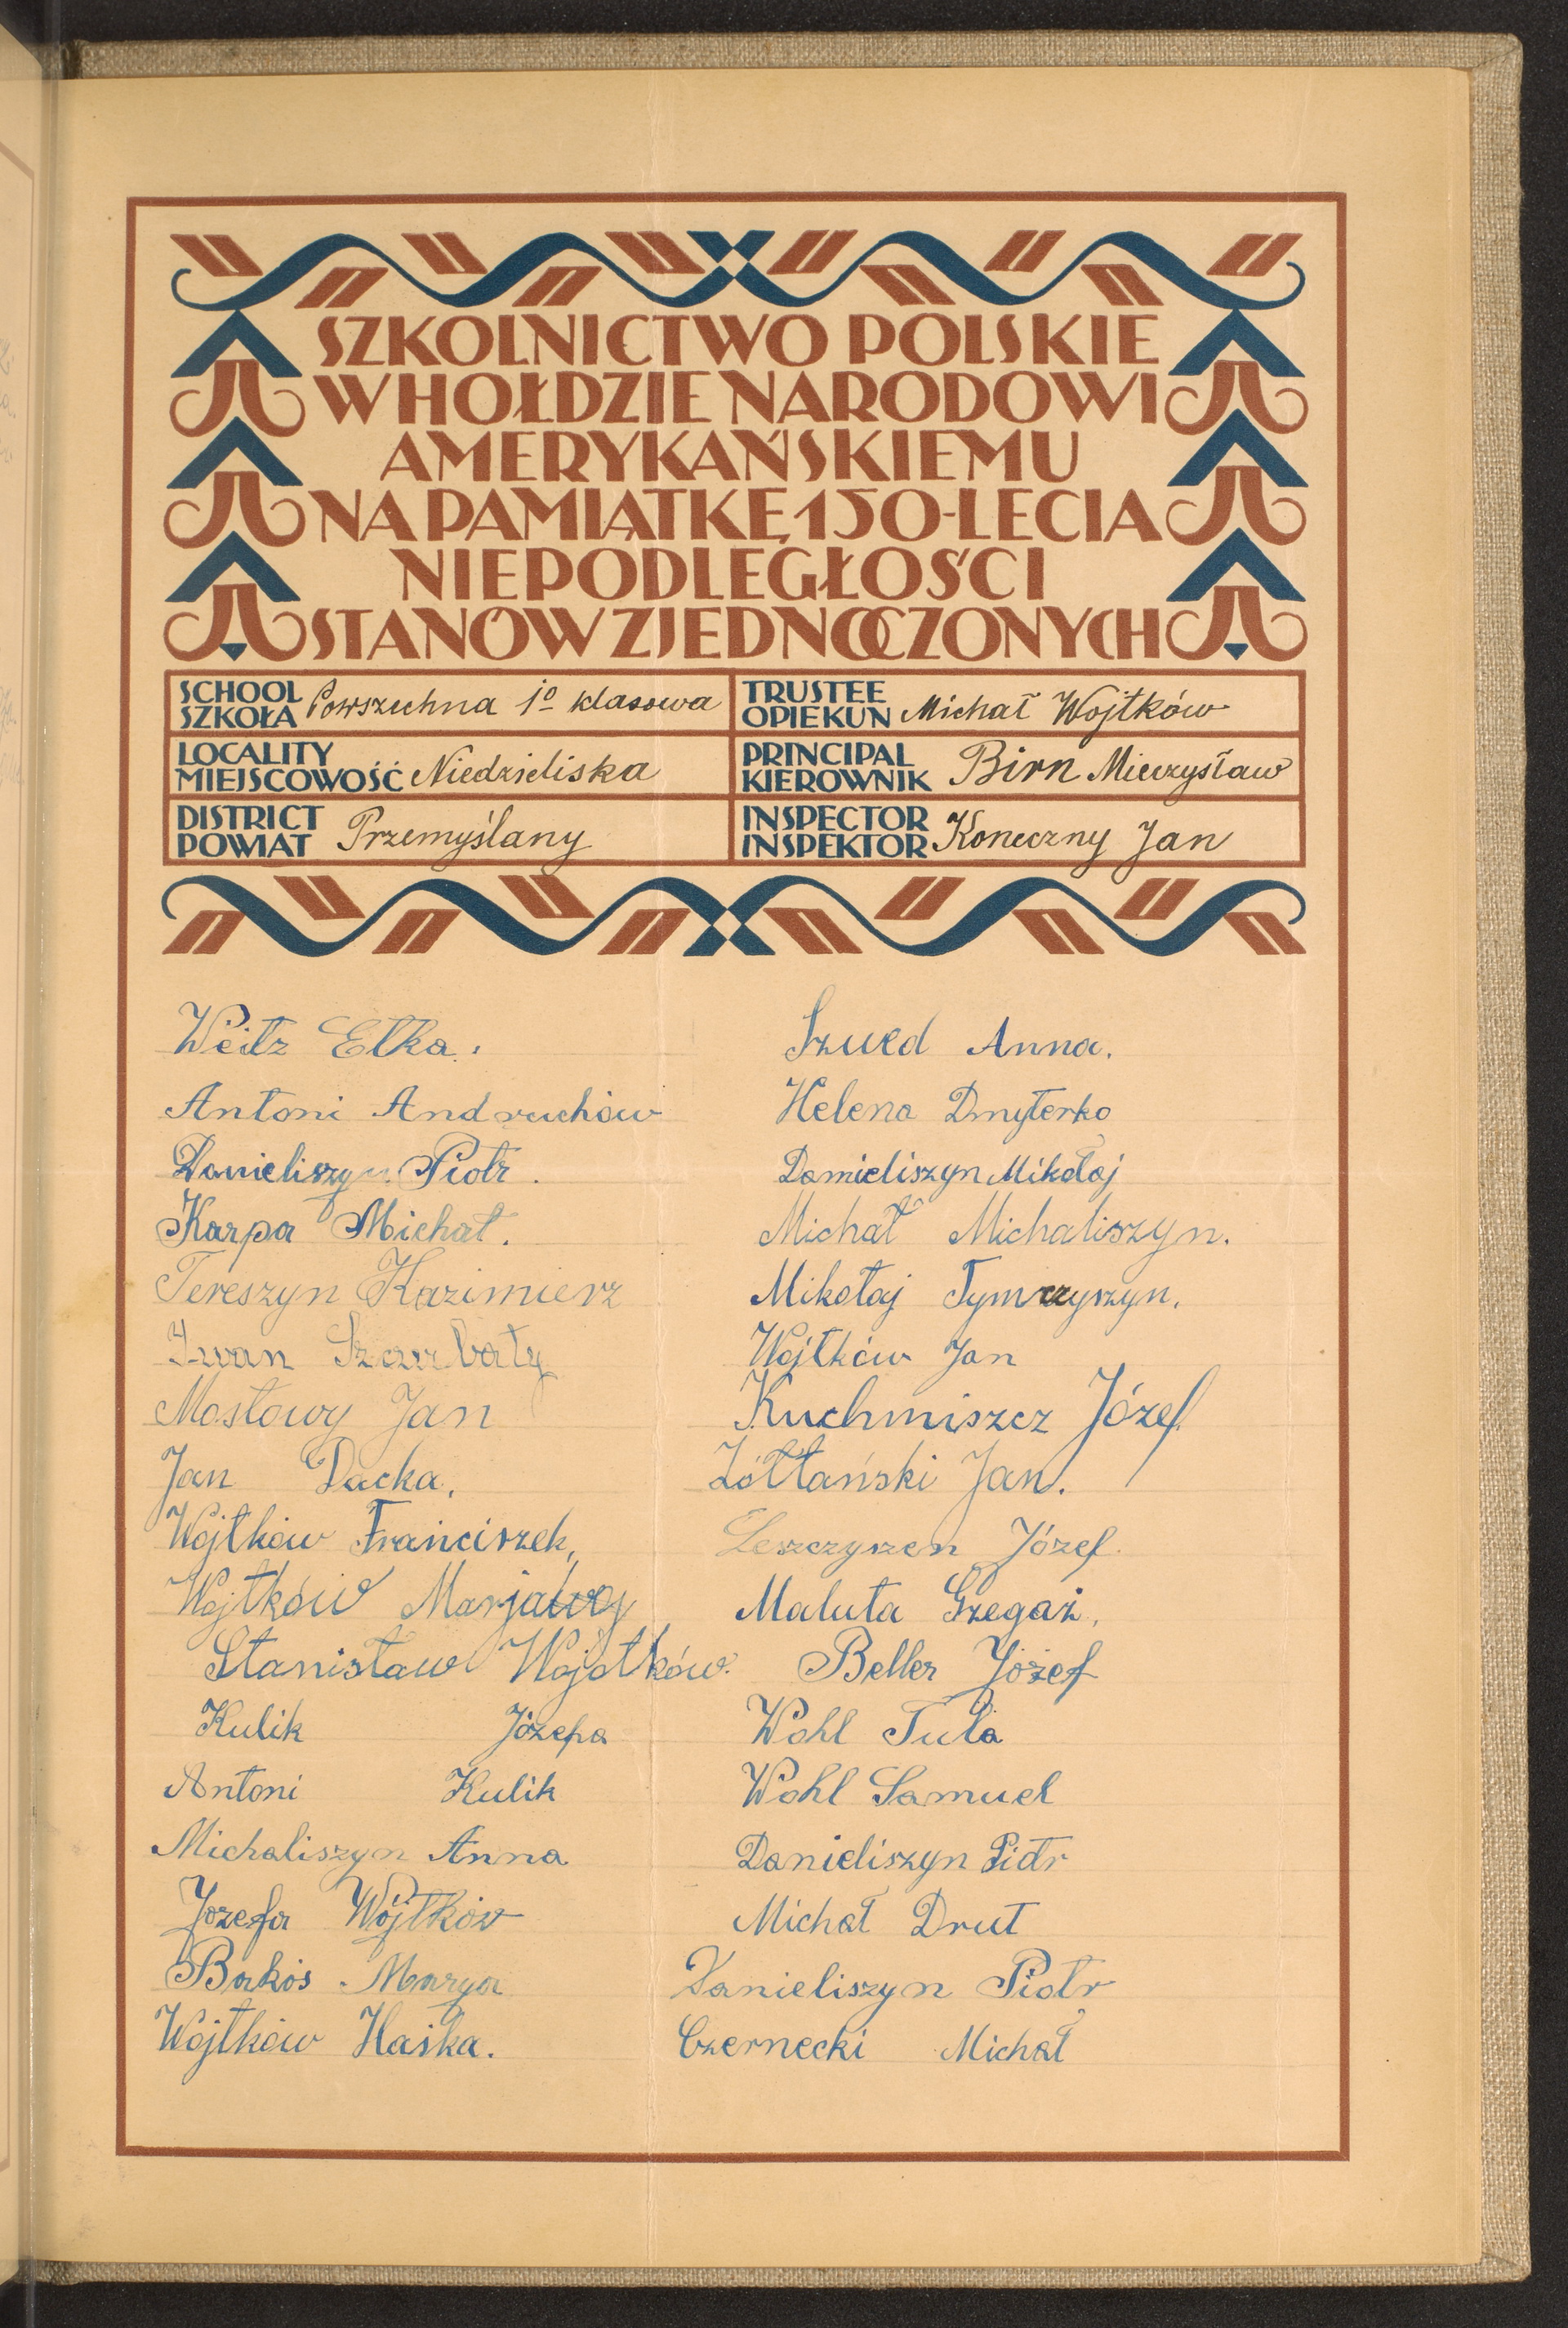 SZKOLNICTWO POLSKIE
W HOŁDZIE NARODOWI
AMERYKAŃSKIEMU
NA PAMIĄTKĘ 150-LECIA
NIEPODLEGŁOŚCI
STANÓW ZJEDNOCZONYCH
SCHOOL
SZKOŁA Powszechna 1º klasowa
TRUSTEE
OPIEKUN Michał Wojtków
LOCALITY
MIEJSCOWOŚĆ Niedzieliska
PRINCIPAL
KIEROWNIK Birn Mieczysław
DISTRICT
POWIAT Przemyślany
INSPECTOR
INSPEKTOR Koneczny Jan
Weitz Etka.
Antoni Andruchów
Danieliszyn Piotr.
Karpa Michał.
Tereszyn Kazimierz
Iwan
Mostowy Jan
Jan Dacka.
Wojtków Franciszek,
Wojtków
Stanisław Wojotków.
Kulik Józepa
Antoni Kulik
Michaliszyn Anna
Jozefa Wójtków
Bakós Marya
Wojtków Haśka.
Szued Anna.
Helena Dmyterko
Damieliszyn Mikołaj
Michał Michaliszyn.
Mikołaj Tymczyszyn.
Wojtków Jan
Kuchmiszcz Józef
Żółtański Jan.
Leszczyszen Józef.
Maluta Grzegaż.
Beller Józef
Wohl Tula
Wohl Samuel
Danieliszyn Piotr
Michał Drut
Danieliszyn Piotr
Czernecki Michał